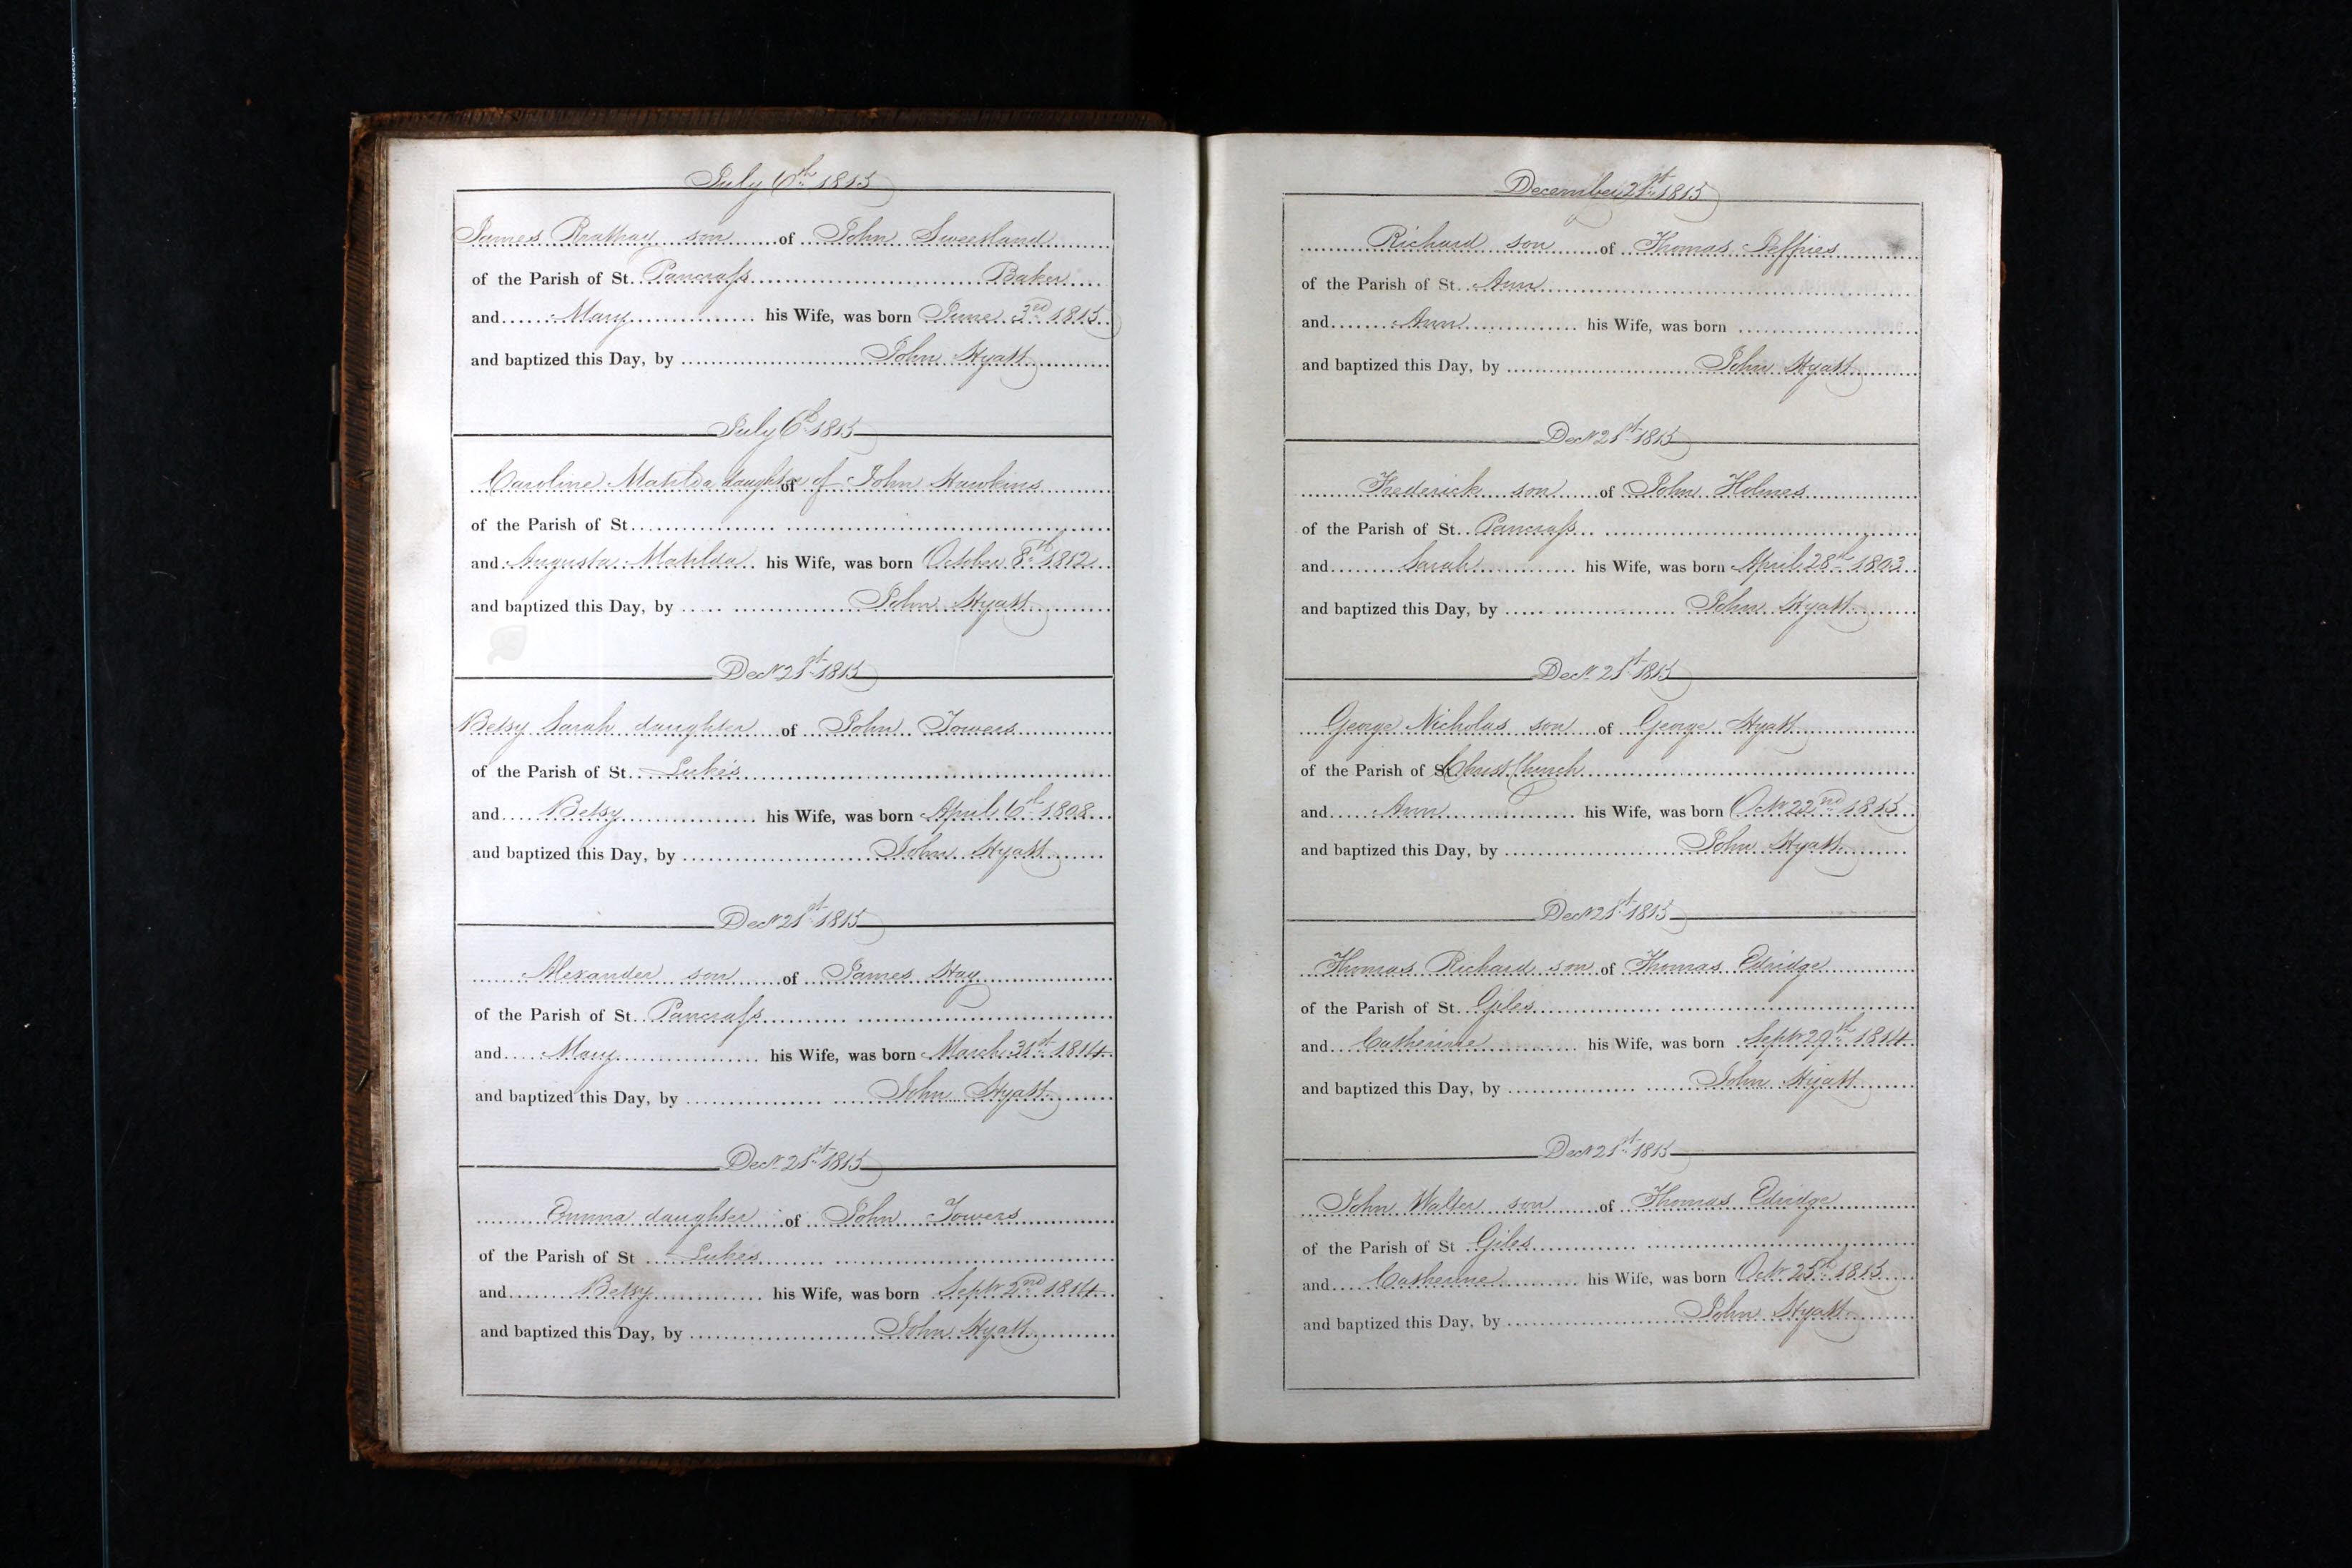 July 6th 1815
James Rrathay son of John Sweesland
of the Parish of St. Pancrass Baker
and Mary his Wife, was born June 3rd 1815
and baptized this Day, by John Hyatt
July 6th 1815
Caroline Matilda daughter of of John Hawkins
of the Parish of St.
and Augusta Matilda his Wife, was born October 8th 1812
and baptized this Day, by John Hyatt
Decr 21st 1815
Betsy Sarah daughter of John Towers
of the Parish of St. Luke's
and Betsy his Wife, was born April 6th 1808
and baptized this Day, by John Hyatt
Decr 21st 1815
Alexander son of James Hay
of the Parish of St. Pancrass
and Mary his Wife, was born March 31st 1814
and baptized this Day, by John Hyatt
Decr 21st 1815
Emma daughter of John Towers
of the Parish of St Lukes
and Betsy his Wife, was born Septr 2nd 1814
and baptized this Day, by John Hyatt
December 21st 1815
Richard son of Thomas Jeffries
of the Parish of St. Ann
and Ann his Wife, was born
and baptized this Day, by John Hyatt
Decr 21st 1815
Frederick son of John Holmes
of the Parish of St. Pancrass
and Sarah his Wife, was born April 28th 1803
and baptized this Day, by John Hyatt
Decr 21st 1815
George Nicholas son of George Hyatt
of the Parish of St Christ Church
and Ann his Wife, was born Octr 22nd 1815
and baptized this Day, by John Hyatt
Decr 21st 1815
Thomas Richard son of Thomas Edridge
of the Parish of St. Giles
and Catherine his Wife, was born Septr 29th 1814
and baptized this Day, by John Hyatt
Decr 21st 1815
John Walter son of Thomas Edridge
of the Parish of St Giles
and Catherine his Wife, was born Octr 25th 1815
and baptized this Day, by John Hyatt